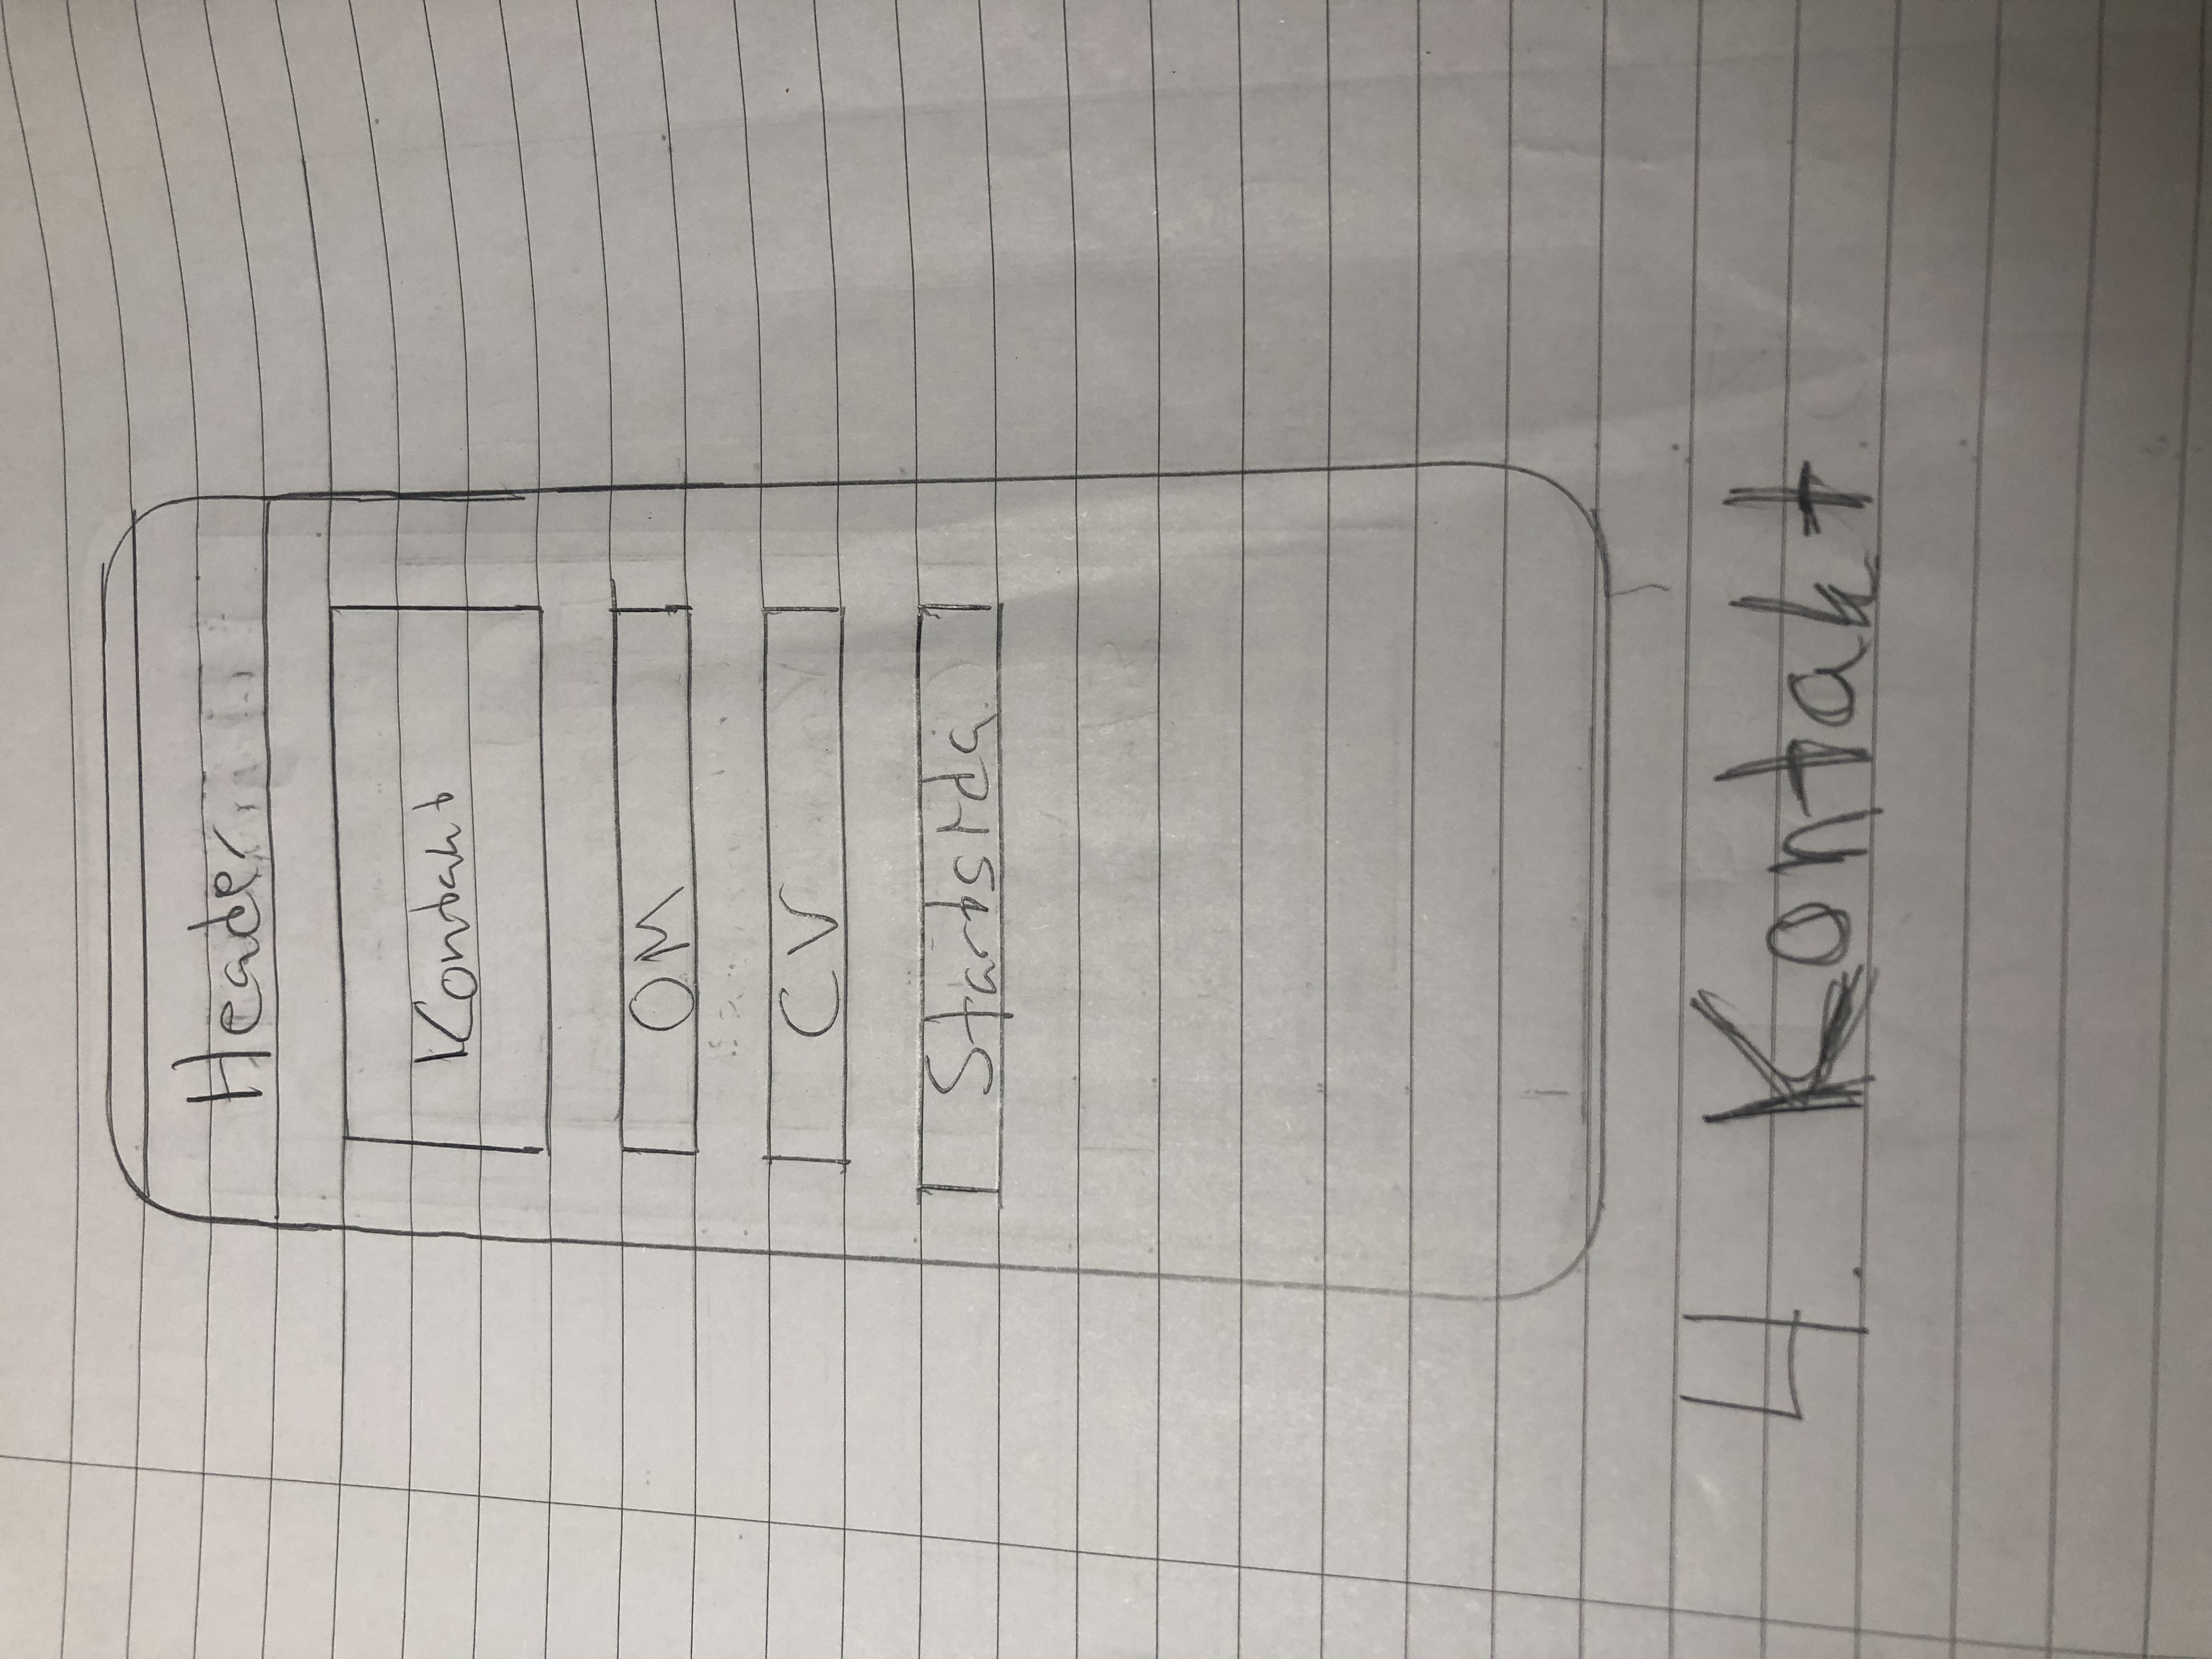 Header
Kontakt
OM
CV
Startsida
4. Kontakt